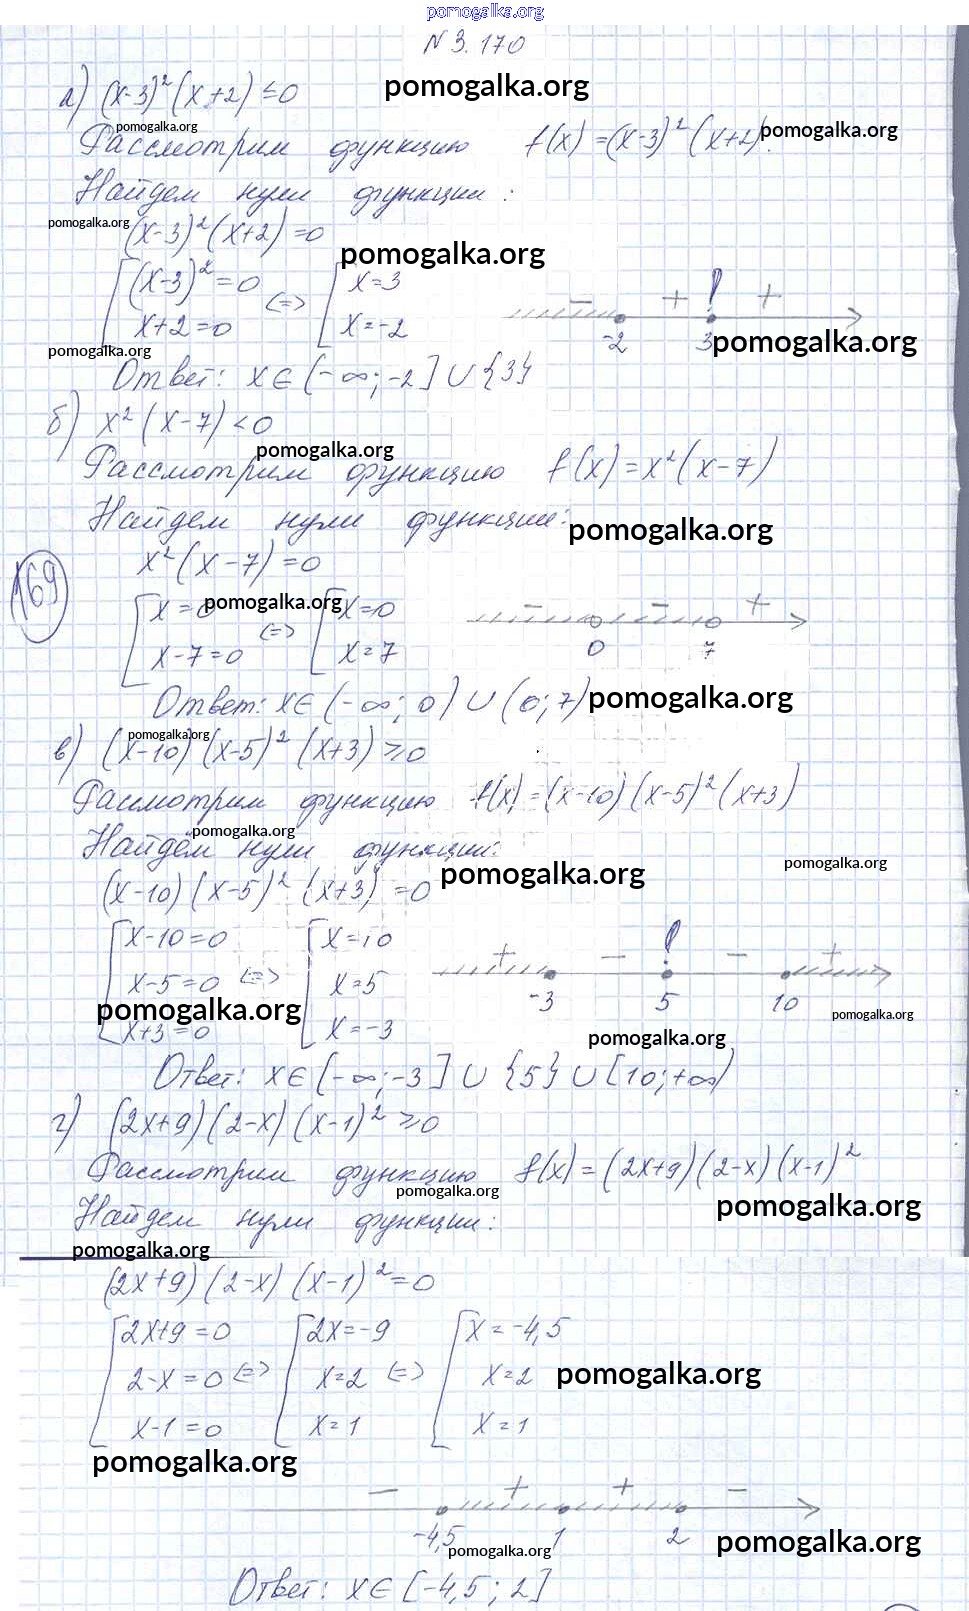 pomogalka.org
N 3.170
а) (x-3)²(x+2) ≤0
pomogalka.org
pomogalka.org
Рассмотрим функцию f(x) =(x-3)²(x+2).
pomogalka.org
Найдем нули функции:
pomogalka.org
(x-3)²(x+2) =0
pomogalka.org
[(x-3)²=0 <=> [x=3
x+2=0 x=-2
- + ! +
-2 3
pomogalka.org
pomogalka.org
Ответ: x∈(-∞;-2]∪{3}
б) x²(x-7)<0
pomogalka.org
Рассмотрим функцию f(x)=x²(x-7)
Найдем нули функции:
pomogalka.org
x²(x-7)=0
169
[x=0 <=> [x=0
pomogalka.org
x-7=0 x=7
- - +
0 7
Ответ: x∈(-∞;0)∪(0;7)
pomogalka.org
pomogalka.org
в) (x-10)(x-5)²(x+3)≥0
Рассмотрим функцию f(x)=(x-10)(x-5)²(x+3)
pomogalka.org
Найдём нули функции:
pomogalka.org
pomogalka.org
(x-10)(x-5)²(x+3) =0
[x-10=0 [x=10
x-5=0 <=> x=5
x+3=0 x=-3
pomogalka.org
+ - ! - +
-3 5 10
pomogalka.org
pomogalka.org
Ответ: x∈(-∞;-3]∪{5}∪[10;+∞)
г) (2x+9)(2-x)(x-1)²≥0
Рассмотрим функцию f(x)=(2x+9)(2-x)(x-1)²
pomogalka.org
pomogalka.org
Найдем нули функции:
pomogalka.org
(2x+9)(2-x)(x-1)²=0
[2x+9=0 [2x=-9 [x=-4,5
2-x=0 <=> x=2 <=> x=2
pomogalka.org
x-1=0 x=1 x=1
pomogalka.org
- + + -
-4,5 1 2
pomogalka.org
pomogalka.org
Ответ: x∈[-4,5;2]